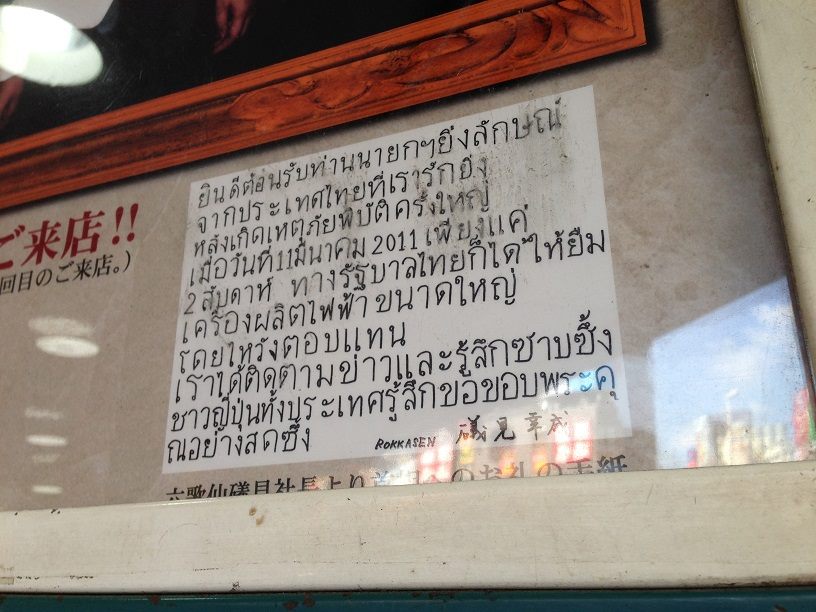 ยินดีต้อนรับท่านนายกฯยิ่งลักษณ์
จากประเทศไทยที่เรารักยิ่ง
หลังเกิดเหตุภัยพิบัติครั้งใหญ่
เมื่อวันที่11มีนาคม 2011 เพียงแค่
2 สัปดาห์ ทางรัฐบาลไทยก็ได้ให้ยืม
เครื่องผลิตไฟฟ้า ขนาดใหญ่
โดยไหวังตอบแทน
เราได้ติดตามข่าวและรู้สึกซาบซึ้ง
ชาวญี่ปุ่นทั้งประเทศรู้สึกขอขอบพระคุ
ณอย่างสดซึ้ง
ROKKASEN 磯見幸成
ご来店!!
回目のご来店。)
六歌仙磯見社長より
へのお礼の手紙